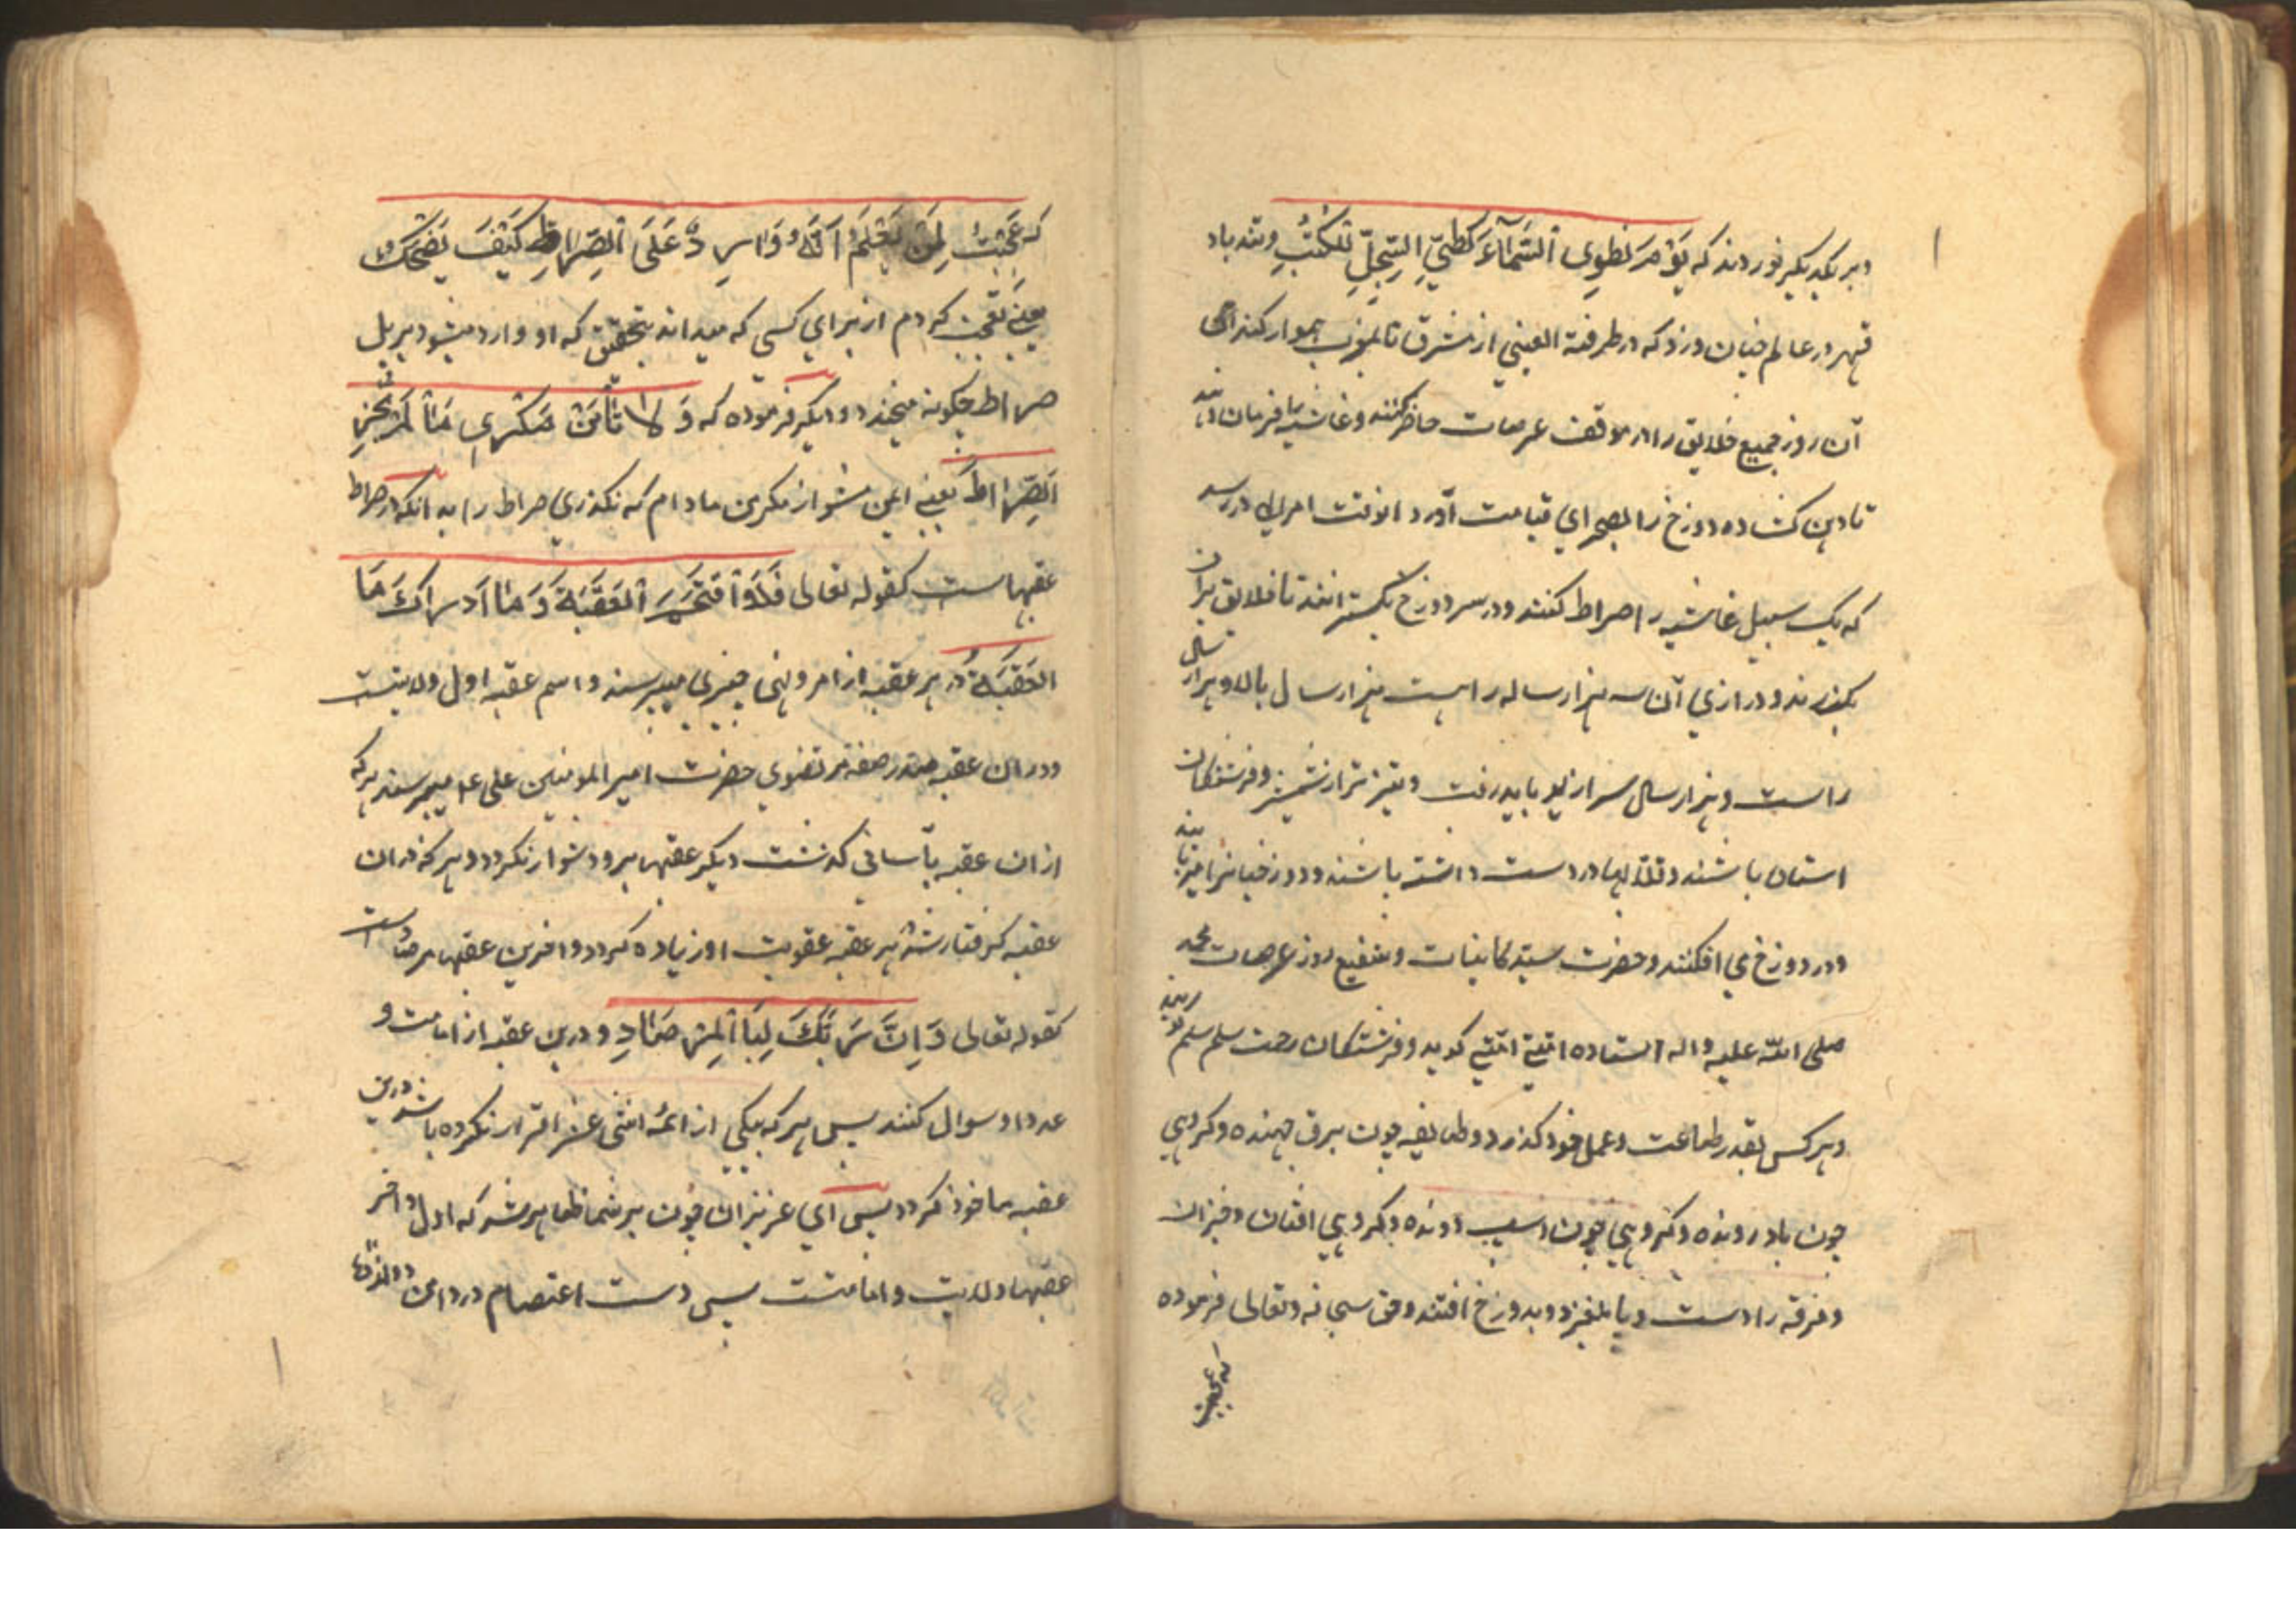 و بر یکدیگر نوردند که یَوْمَ نَطْوِی السَّمَآءَ کَطَیِّ السِّجِلِّ لِلْکُتُبِ و تند باد
قهر در عالم چنان وزد که در طرفة العینی از مشرق تا بمغرب هموار کند
آن روز جمیع خلایق را در موقف عرصات حاضر کنند و غاشیه را فرمان دهند
تا دهن کشاده دوزخ را بصحرای قیامت آورد انوقت امر در رسد
که یک سبیل غاشیه را صراط کنند و در سر دوزخ بگسترانند تا خلایق بران
بگذرند و درازی آن سه هزار ساله راهست هزار سال بالا و هزار سال
راست و هزار سال سرازیر باید رفت و تیزتر از شمشیر و فرشتکان
استاده باشند و قلابها در دست داشته باشند و دوزخیانرا
و در دوزخ می افکنند و حضرت سید کاینات و شفیع روز عرصات محمد
صلی الله علیه و اله استاده امتی امتی کوید و فرشتکان رحمت سلم سلم کویند
و هر کس بقدر طاعت و عمل خود کذرد و طایفه چون برق جهنده و کروهی
چون باد رونده و کروهی چون اسب دونده و کروهی افتان و خیزان
و فرقه را دست و پا بلغزد و بدوزخ افتند و حق سبحانه و تعالی فرموده
که عجبت
که عَجِبْتُ لِمَنْ یَعْلَمُ اَنَّهُ وَارِدٌ عَلَی الصِّرَاطِ کَیْفَ یَضْحَکُ
یعنی تعجب کردم از برای کسی که میداند بتحقیق که او وارد میشود بر پل
صراط چکونه میخندد و دیگر فرموده که وَ لَا تَأْمَنْ مَکْرِی مَا لَمْ تَجُزِ
الصِّرَاطَ یعنی ایمن مشو از مکر من مادام که نکذری صراط را بدانکه در صراط
عقبهاست کقوله تعالی فَلَا اقْتَحَمَ الْعَقَبَةَ وَ مَا اَدْرَاکَ مَا
الْعَقَبَةُ در هر عقبه از امر و نهی چیزی میپرسند و اسم عقبه اول ولایتست
و در ان عقبه مرتضوی حضرت امیر المومنین علی ع میپرسند هر که
از ان عقبه بآسانی کذشت دیکر عقبها برو دشوار نکردد و هر که در ان
عقبه کرفتار شد هر عقبه عقوبت او زیاده کردد و اخرین عقبها مرصاد است
کقوله تعالی وَ اِنَّ رَبَّکَ لَبِالْمِرْصَادِ و درین عقبه از امامت و
عدد او سوال کنند پس هر که بیکی از ائمه اثنی عشر اقرار نکرده باشد درین
عقبه ماخوذ کردد پس ای عزیزان چون بر شما ظاهر شد که اول و اخر
عقبها ولایت و امامتست پس دست اعتصام در دامن